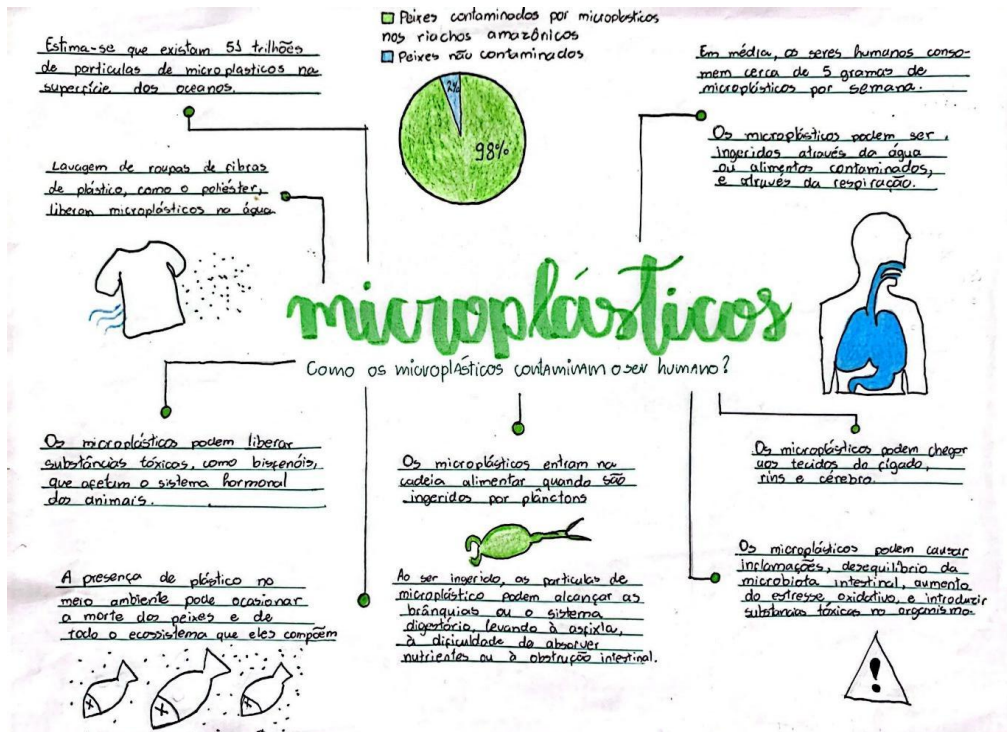 Peixes contaminados por microplasticos
nos riachos amazônicos
Peixes não contaminados
2%
98%
Estima-se que existam 51 trilhões
de particulas de microplasticos na
superfície dos oceanos.
Lavagem de roupas de fibras
de plástico, como o poliéster,
liberam microplásticos na água
Em média, os seres humanos conso-
mem cerca de 5 gramas de
microplásticos por semana.
Os microplásticos podem ser
ingeridos através da água
ou alimentos contaminados,
e através da respiração.
microplásticos
Como os microplásticos contaminam o ser humano?
Os microplásticos podem liberar
substâncias tóxicas, como bisfenóis,
que afetam o sistema hormonal
dos animais.
A presença de plástico no
meio ambiente pode ocasionar
a morte dos peixes e de
todo o ecossistema que eles compõem
Os microplásticos entram na
cadeia alimentar quando são
ingeridos por plânctons
Ao ser ingerido, as partículas de
microplástico podem alcançar as
brânquias ou o sistema
digestório, levando à asfixia,
à dificuldade de absorver
nutrientes ou à obstrução intestinal.
Os microplásticos podem chegar
aos tecidos do fígado,
rins e cérebro.
Os microplásticos podem causar
inflamações, desequilíbrio da
microbiota intestinal, aumento
do estresse oxidativo, e introduzir
substâncias tóxicas no organismo.
!